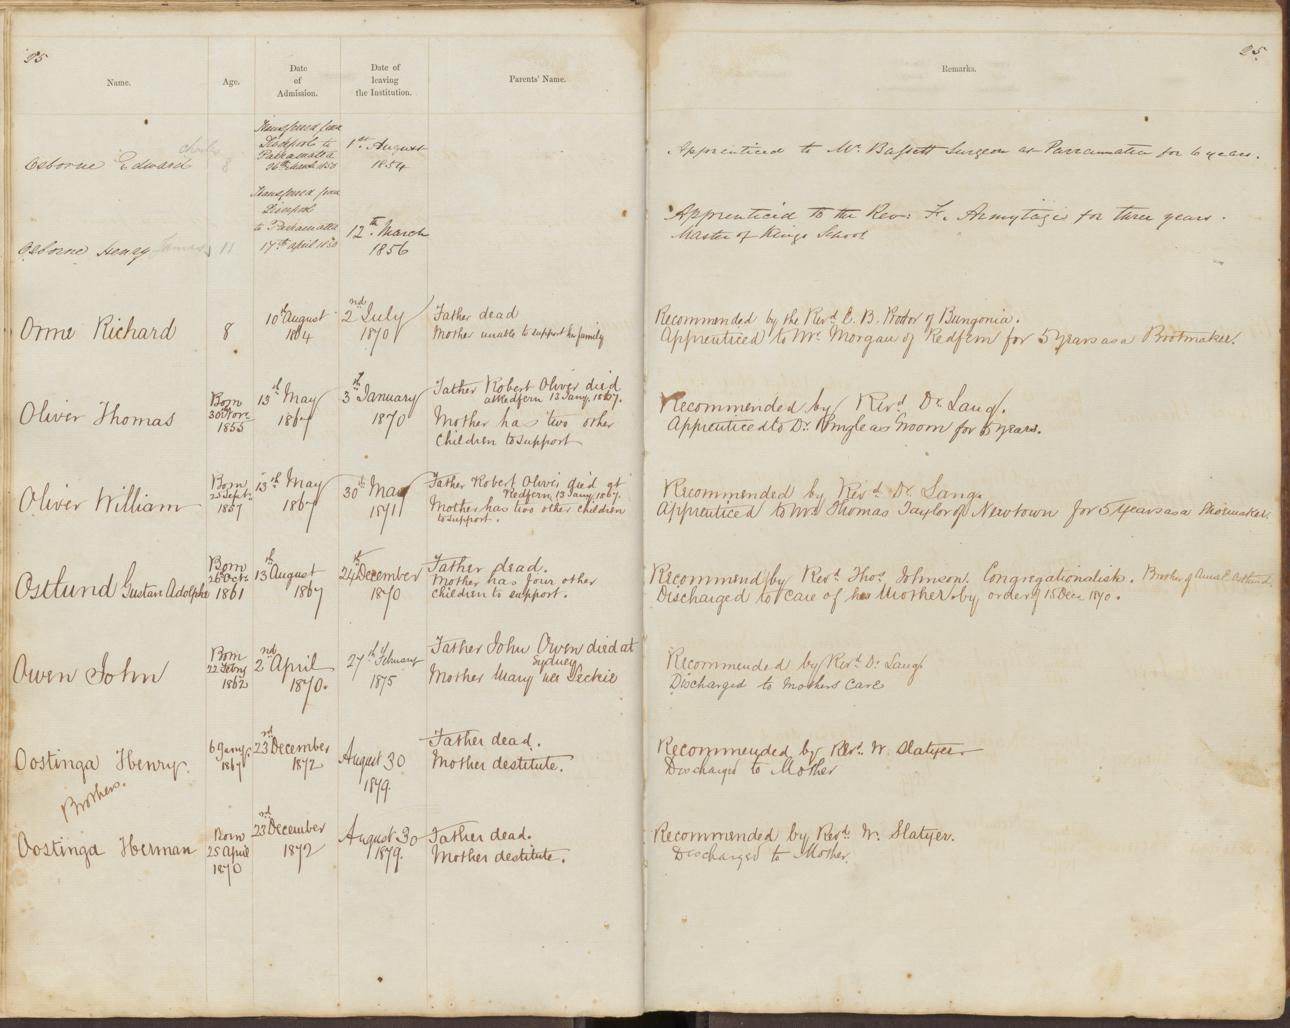 25
25
Name.
Age.
Date
of
Admission.
Date of
leaving
the Institution.
Parents' Name.
Remarks.
Osborne Edward Charles
8
Transferred from
Liverpool to
Parramatta
1850
1st August
1854
Apprenticed to Mr. Bassett Surgeon at Parramatta for 6 years.
Osborne Henry James
11
Transferred from
Liverpool
to Parramatta
17th April 1850
12th March
1856
Apprenticed to the Rev: F. Armytage for three years.
Master of Kings School
Orme Richard
8
10th August
1864
2nd July
1870
Father dead
Mother unable to support her family
Recommended by the Revd E. B. Proctor of Bungonia.
Apprenticed to Mr. Morgan of Redfern for 5 years as a Bootmaker.
Oliver Thomas
Born
30 Novr
1855
13th May
1867
3rd January
1870
Father Robert Oliver died
at Redfern 13 Jany. 1867.
Mother has two other
children to support
Recommended by Revd Dr. Lang.
Apprenticed to Dr. Pringle as Groom for 5 years.
Oliver William
Born
25 Sept.
1857
13th May
1867
30th May
1871
Father Robert Oliver died at
Redfern 13 Jany. 1867.
Mother has two other children
to support.
Recommended by Revd Dr. Lang.
Apprenticed to Mr. Thomas Taylor of Newtown for 5 years as a Shoemaker.
Ostlund Gustan Adolphe
Born
26 Octr.
1861
13th August
1867
24th December
1870
Father dead.
Mother has four other
children to support.
Recommend by Revd. Thos. Johnson. Congregationalist. Brother of Ostlund.
Discharged to care of his Mother by order of 15 Dec. 1870.
Owen John
Born
22 Febry
1862
2nd April
1870.
27th February
1875
Father John Owen died at
Sydney
Mother Mary nee Leckie
Recommended by Revd Dr. Lang.
Discharged to Mothers Care
Oostinga Henry.
6 Jany.
1867
23rd December
1872
August 30
1879.
Father dead.
Mother destitute.
Recommended by Revd. W. Slatyer
Discharged to Mother
Brothers.
Oostinga Herman
Born
25 April
1870
23rd December
1872
August 30
1879.
Father dead.
Mother destitute.
Recommended by Revd. W. Slatyer.
Discharged to Mother.